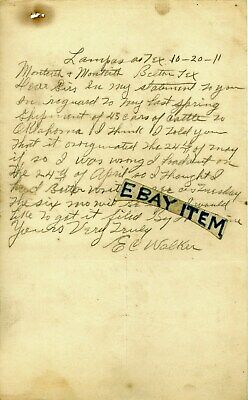 Lampasas Tex 10-20-11
Monteith & Monteith Belton Tex
Dear Sirs In my statement to you
In reguard to my last spring
Shipment of 43 cars of cattle to
Oklahoma I think I told you
that it origunated the 24th of may
if so I was wrong I
the 24th of April so I thought I
had Better write Tuesday
the six mo would
like to get it filed By
Yours Very Truly
E C Walker
EBAY ITEM